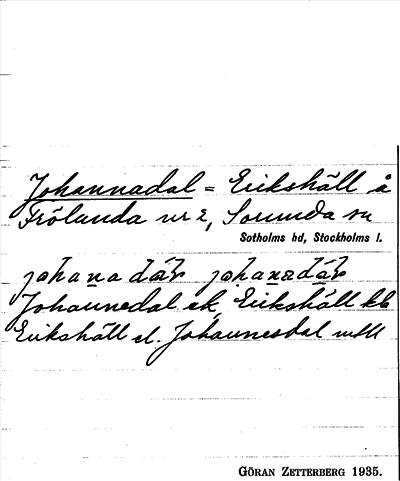 Johannadal = Erikshäll å
Frölunda nr 2, Sorunda sn
Sotholms hd, Stockholms l.
johanadár johanedár
Johannedal ek, Erikshäll kb
Erikshäll el. Johannesdal mtll
GÖRAN ZETTERBERG 1935.